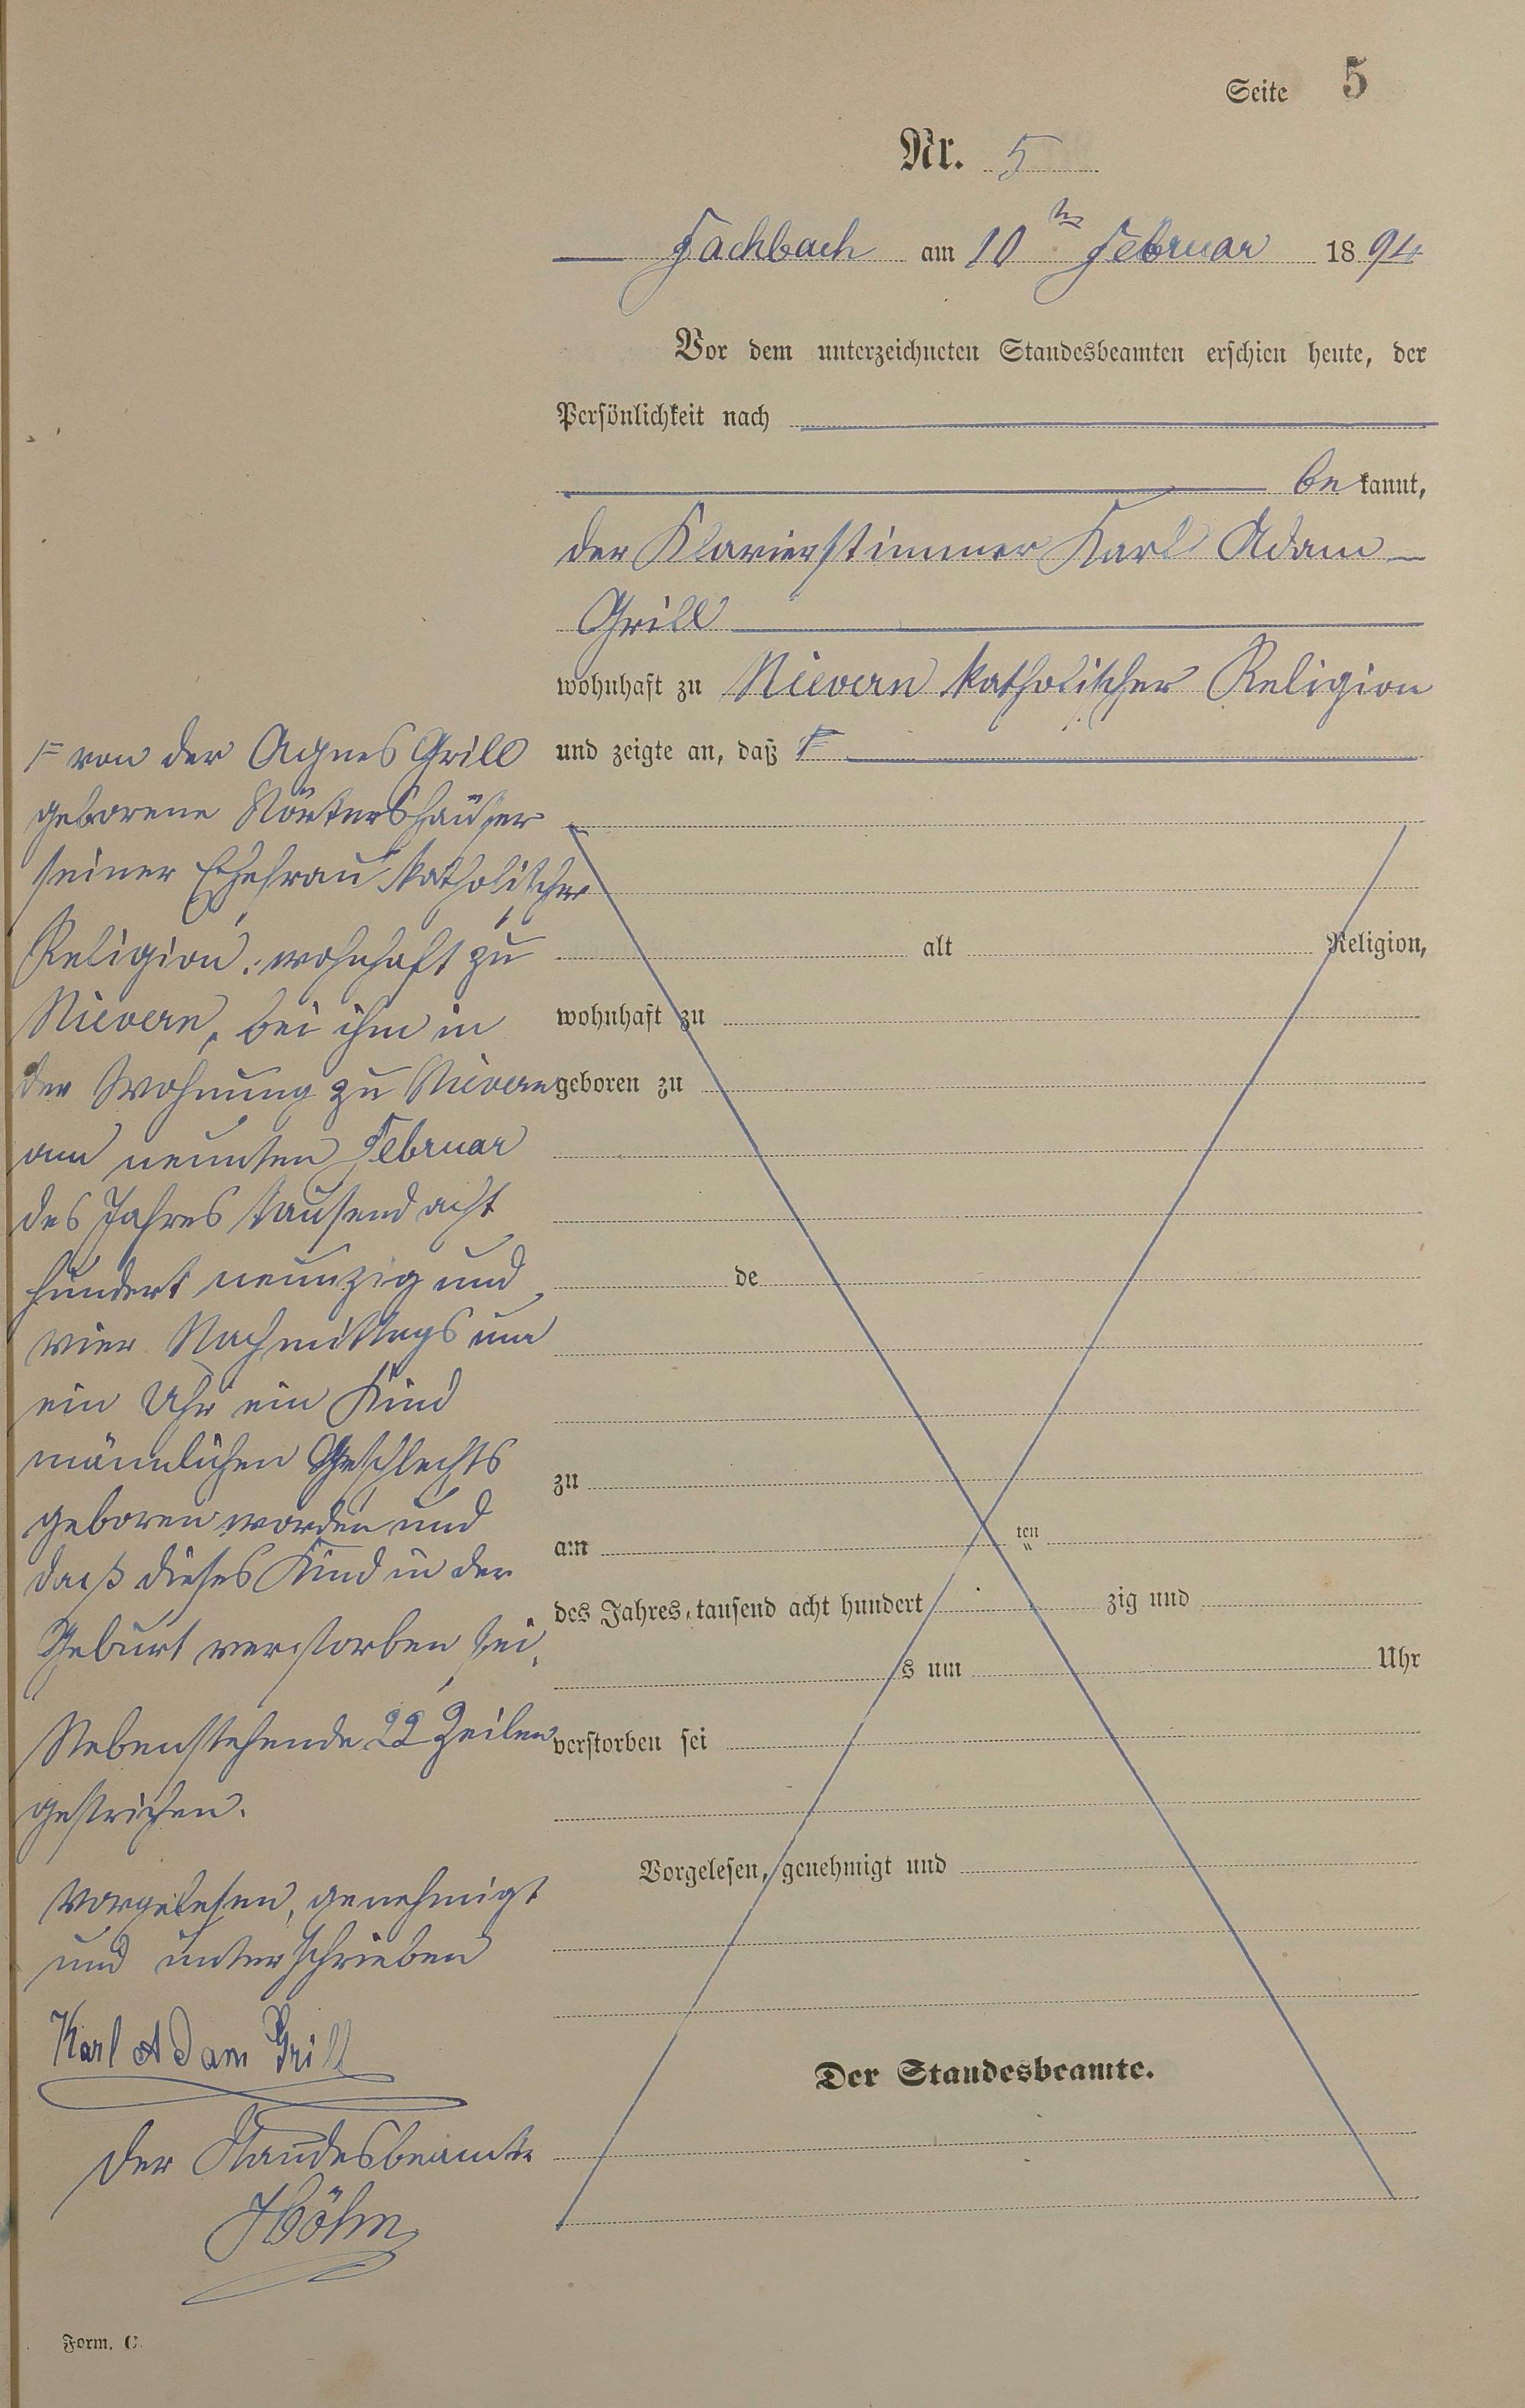 Seite 5
Nr. 5
Fachbach am 10ten Februar 1894
Vor dem unterzeichneten Standesbeamten erschien heute, der
Persönlichkeit nach
bekannt,
der Klavierstimmer Karl Adam
Grill
wohnhaft zu Nievern katholischer Religion
und zeigte an, daß
von der Agnes Grill
geborene Nörtershäuser
seiner Ehefrau katholischer
Religion, wohnhaft zu
Nievern, bei ihm in
der Wohnung zu Nievern
am neunten Februar
des Jahres tausend acht
hundert neunzig und
vier Nachmittags um
ein Uhr ein Kind
männlichen Geschlechts
geboren worden und
daß dieses Kind in der
Geburt verstorben sei.
Nebenstehende 22 Zeilen
gestrichen.
Vorgelesen, genehmigt
und unterschrieben
Karl Adam Grill
Der Standesbeamte
Höhn
alt Religion,
wohnhaft zu
geboren zu
de
zu
am ten
des Jahres tausend acht hundert zig und
s um Uhr
verstorben sei
Vorgelesen, genehmigt und
Der Standesbeamte.
Form. C.